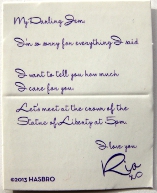 My Darling Jem
I'm so sorry for everything I said
I want to tell you how much
I care for you.
Let's meet at the crown of the
Statue of Liberty at 5pm.
I love you
Rio
XO
©2013 HASBRO